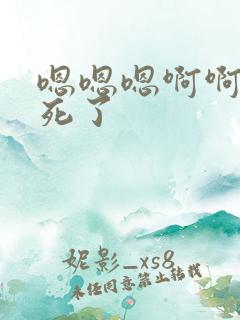 嗯嗯嗯啊啊
死了
妮影_xs8
未经同意禁止转载